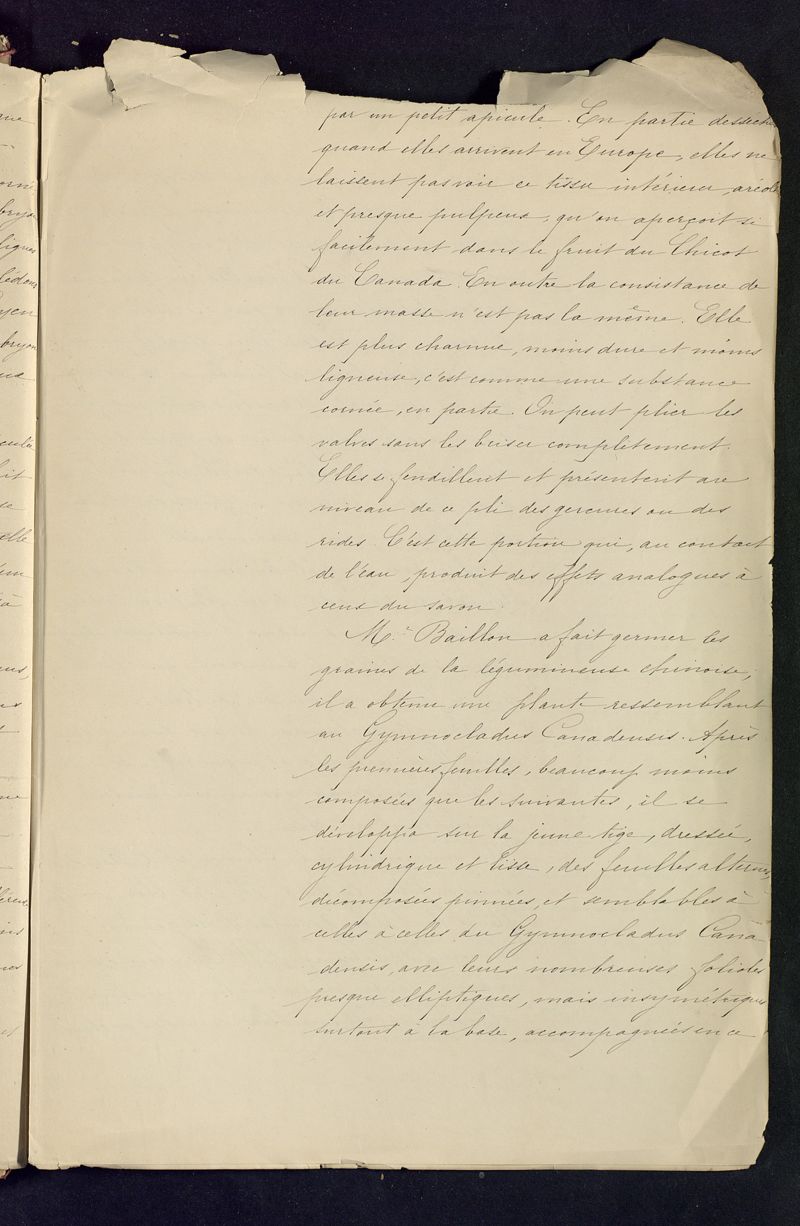 par un petit apicule. En partie desséch
quand elles arrivent en Europe, elles ne
laissent pas voir ce tissu intérieur, aréol
et presque pulpeux, qu'on aperçoit si
facilement dans le fruit du Chicot
du Canada. En outre la consistance de
leur masse n'est pas la même. Elle
est plus charnue, moins dure et moins
ligneuse, c'est comme une substance
cornée, en partie. On peut plier les
valves sans les briser complètement.
Elles se fendillent et présentent au
niveau de ce pli des gerçures ou des
rides. C'est cette portion qui, au contact
de l'eau, produit des effets analogues à
ceux du savon.
Mr. Baillon a fait germer les
graines de la légumineuse chinoise,
il a obtenu une plante ressemblant
au Gymnocladus Canadensis. Après
les premières feuilles, beaucoup moins
composées que les suivantes, il se
développa sur la jeune tige, dressée,
cylindrique et lisse, des feuilles alternes,
décomposées pinnées, et semblables à
celles à celles du Gymnocladus Cana-
densis, avec leurs nombreuses folioles
presque elliptiques, mais insymétriques
surtout à la base, accompagnées en ce